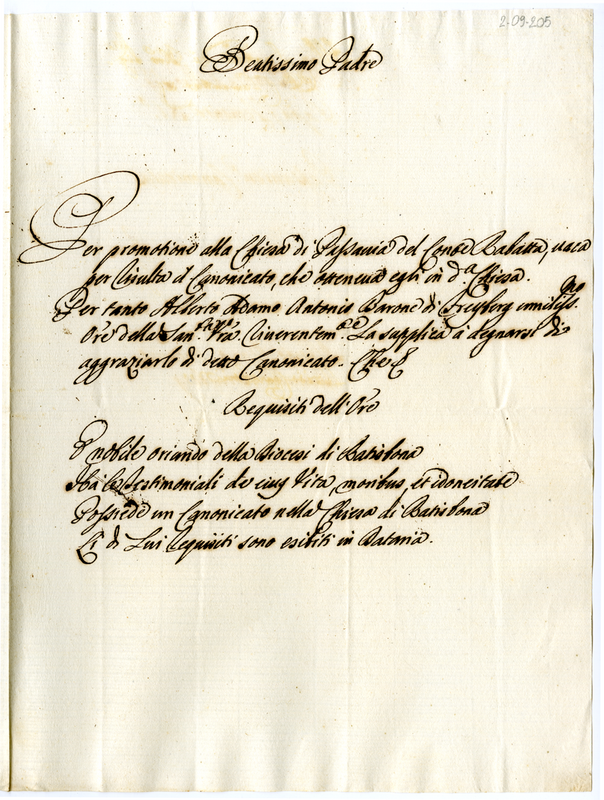 2-09-205
Beatissimo Padre
Per promotione alla Chiesa di Passavia del Conte Rabatta, vaca
per risulta il Canonicato, che otteneva egli in d.a Chiesa.
Per tanto Alberto Adamo Antonio Barone di Freyberg umiliss.mo
Ore della San.tà V.ra riverentem.te La supplica à degnarsi di
aggraziarlo di detto Canonicato. Che &
Requisiti dell'Ore
È nobile oriundo della Diocesi di Ratisbona
Hà le Testimoniali de eius Vita, moribus, et idoneitate
Possiede un Canonicato nella Chiesa di Ratisbona
Li di Lui requisiti sono esibiti in Dataria.